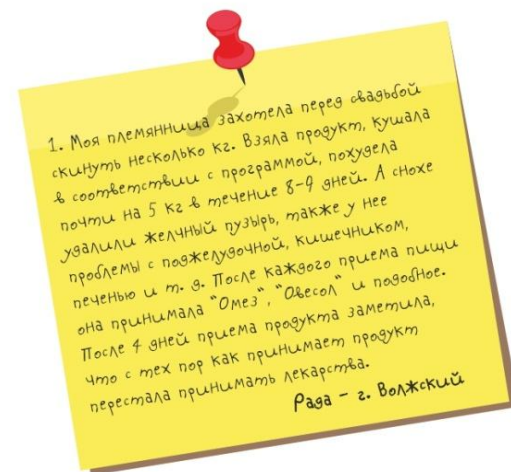 1. Моя племянница захотела перед свадьбой
скинуть несколько кг. Взяла продукт, кушала
в соответствии с программой, похудела
почти на 5 кг в течение 8-9 дней. А снохе
удалили желчный пузырь, также у нее
проблемы с поджелудочной, кишечником,
печенью и т. д. После каждого приема пищи
она принимала "Омез", "Овесол" и подобное.
После 4 дней приема продукта заметила,
что с тех пор как принимает продукт
перестала принимать лекарства.
Рада - г. Волжский